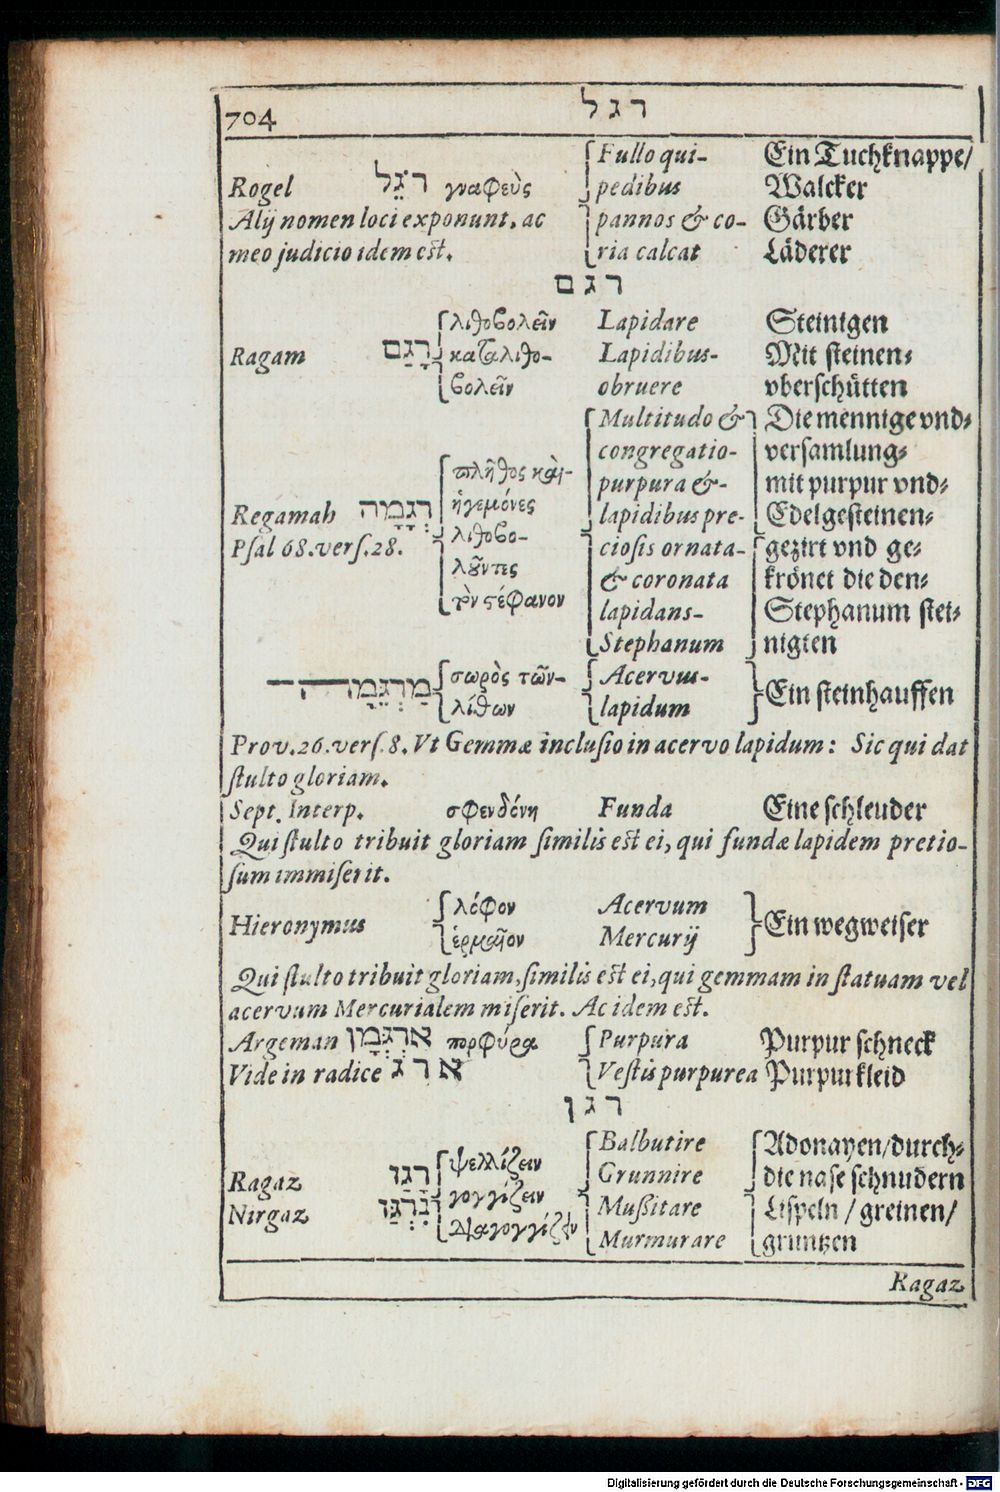 704 רגל
Rogel רֹגֵל γναφεὺς Fullo qui- Ein Tuchknappe/
pedibus Walcker
Alij nomen loci exponunt, ac pannos & co- Gärber
meo judicio idem est. ria calcat Läderer
רגם
λιθοβολεῖν Lapidare Steinigen
Ragam רָגַם καταλιθο- Lapidibus- Mit steinen-
βολεῖν obruere vberschütten
Multitudo & Die mennige vnd-
congregatio- versamlung-
πλῆθος καὶ- purpura &- mit purpur vnd-
Regamah רִגְמָה ἡγεμόνες lapidibus pre- Edelgesteinen-
Psal 68. vers. 28. λιθοβο- ciosis ornata- gezirt vnd ge-
λοῦντες & coronata krönet die den-
τὸν στέφανον lapidans- Stephanum stei-
Stephanum nigten
מַרְגֵּמָה σωρὸς τῶν- Acervus- Ein steinhauffen
λίθων lapidum
Prov. 26. vers. 8. Vt Gemmæ inclusio in acervo lapidum: Sic qui dat
stulto gloriam.
Sept. Interp. σφενδόνη Funda Eine schleuder
Qui stulto tribuit gloriam similis est ei, qui fundæ lapidem pretio-
sum immiserit.
Hieronymus λόφον Acervum Ein wegweiser
ἑρμαῖον Mercurij
Qui stulto tribuit gloriam, similis est ei, qui gemmam in statuam vel
acervum Mercurialem miserit. Ac idem est.
Argeman אַרְגְּמָן πορφύρα Purpura Purpur schneck
Vide in radice ארג Vestis purpurea Purpurkleid
רגן
ψελλίζειν Balbutire Adonayen/durch-
Ragaz רָגַז Grunnire die nase schnudern
Nirgaz נִרְגַז γογγίζειν Mussitare Lispeln / greinen/
διαγογγίζειν Murmurare gruntzen
Ragaz
Digitalisierung gefördert durch die Deutsche Forschungsgemeinschaft - DFG